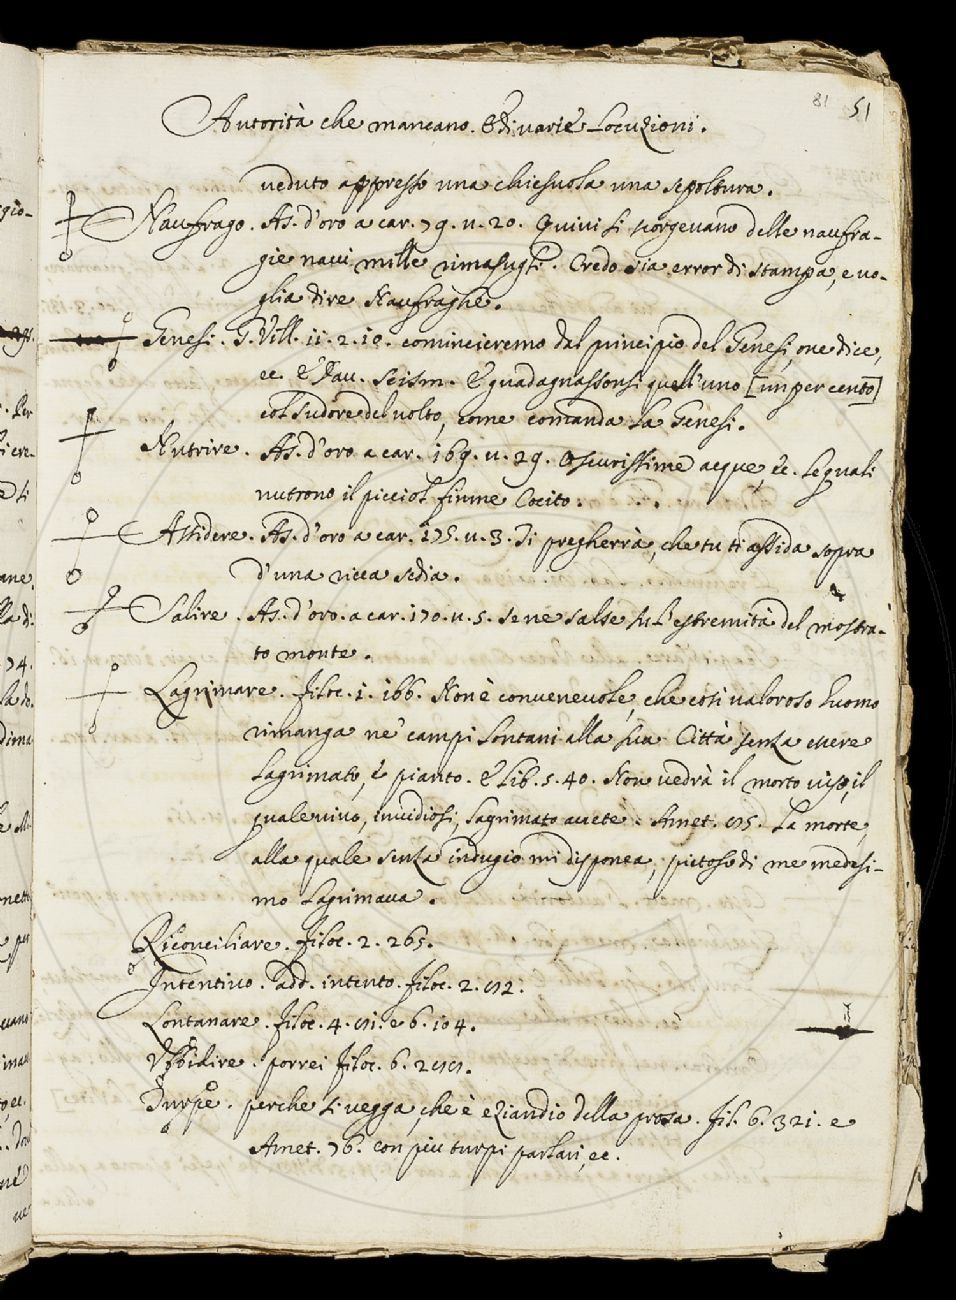 81 51
Autorità che mancano. E di varie Locuzioni.
veduto appresso una chiesuola una sepoltura.
Naufrago. As. d'oro a car. 79. u. 20. Quivi si scorgevano delle naufra-
gie navi mille rimasugli. Credo sia error di stampa, e vo-
glia dire Naufraghe.
Genesi. G. Vill. 11. 2. 10. comincieremo dal principio del Genesi, one dice,
ec. E Dav. Scism. E guadagnassonsi quell'uno [un per cento]
col sudore del volto, come comanda la Genesi.
Nutrire. As. d'oro a car. 169. u. 29. Oscurissime acque, &c. le quali
nutrono il picciol fiume Cocito.
Assidere. As. d'oro a car. 175. u. 3. Ti pregherrà, che tu ti assida sopra
d'una ricca sedia.
Salire. As. d'oro. a car. 170. u. 5. se ne salse su l'estremità del mostra-
to monte.
Lagrimare. Filoc. 1. 166. Non è convenevole, che così valoroso huomo
rimanga ne' campi lontani alla sua Città senza essere
lagrimato, e pianto. E lib. 5. 40. Non vedrà il morto viso, il
quale vivo, invidiosi, lagrimato avete. Amet. 95. La morte,
alla quale senza indugio mi disponea, pietoso di me medesi-
mo lagrimava.
Riconciliare. Filoc. 2. 265.
Intentivo. add. intento. Filoc. 2. 92.
Lontanare. Filoc. 4. 91. e 6. 104.
Ubbidire. porrei Filoc. 6. 299.
Turpe. perche si vegga, che è eziandio della prosa. Fil. 6. 321. e
Amet. 76. con piu turpi parlari, ec.